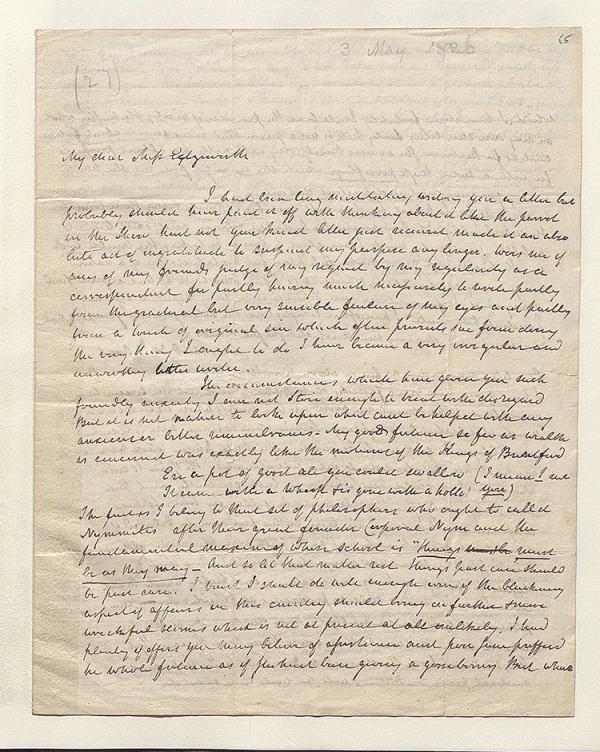 65
3 May 1826
(27)
My dear Miss Edgeworth
I had been long meditating writing you a letter but
probably should have paid it off with thinking about it like the parrot
in the Shew had not your kind letter just received made it an abso
lute act of ingratitude to suspend my purpose any longer. Woes me if
any of my friends judge of my regard by my regularity as a
correspondent for partly having much necessarily to write partly
from the gradual but very sensible failure of my eyes and partly
from a touch of original sin which often prevents me from doing
the very thing I ought to do I have become a very irregular and
unworthy letter writer.
The circumstances which have given you such
friendly anxiety I am not Stoic enough to treat with disregard
But it is not my nature to look upon what cant be helped with any
anxious or bitter remembrances - My good fortune so far as wealth
is concerned was exactly like the of the Kings of Brentford
Ere a pot of good ale you could swallow (I mean I not
It came with a whoop & is gone with a hollo you)
The fact is I belong to that set of philosophers who ought to be called
Nymmites after their great founder Corporal Nym and the
fundamental maxim of whose school is "things must be must
be as they may - And so let that matter rest things past cure should
be past care. I trust I should do well enough even if the blackening
aspect of affairs in this country should bring on further & more
wreckful scenes which is not at present at all unlikely. I had
plenty of offers you may believe of assistance and poor
his whole fortune as if he had been giving a gooseberry. But where